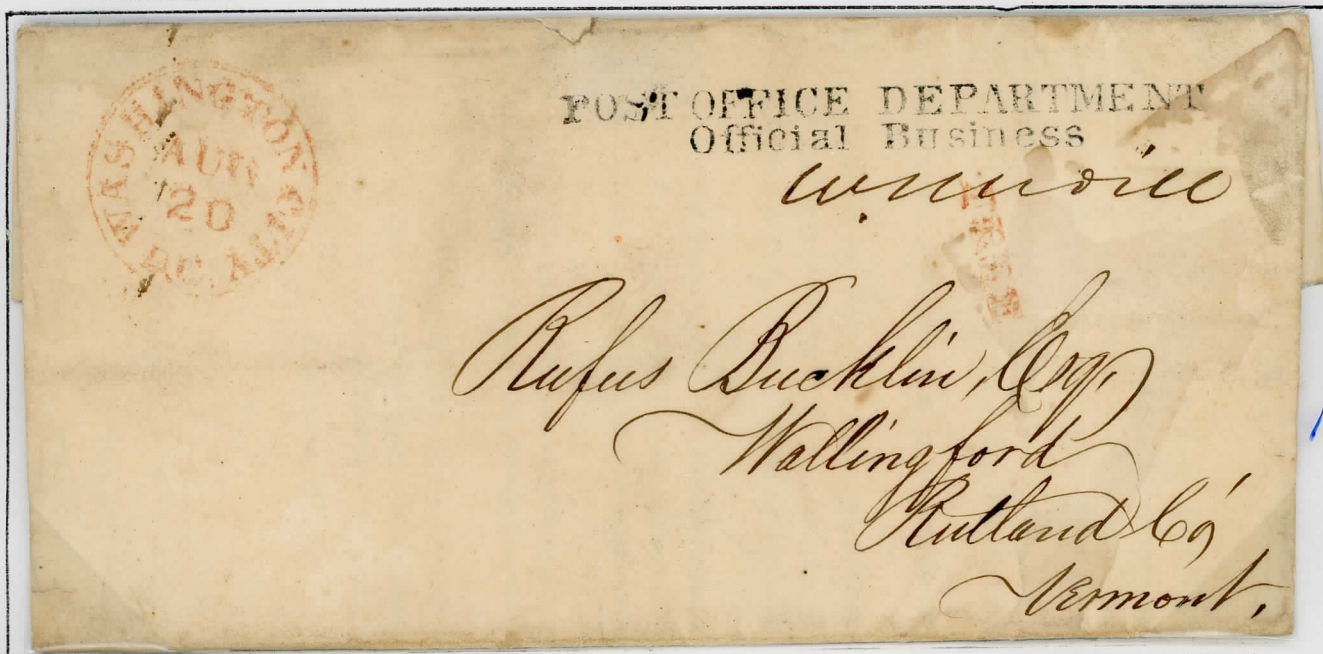 WASHINGTON CITY D.C.
AUG
20
POST OFFICE DEPARTMENT
Official Business
FREE
Rufus Bucklin, Esq,
Wallingford
Rutland Co,
Vermont.